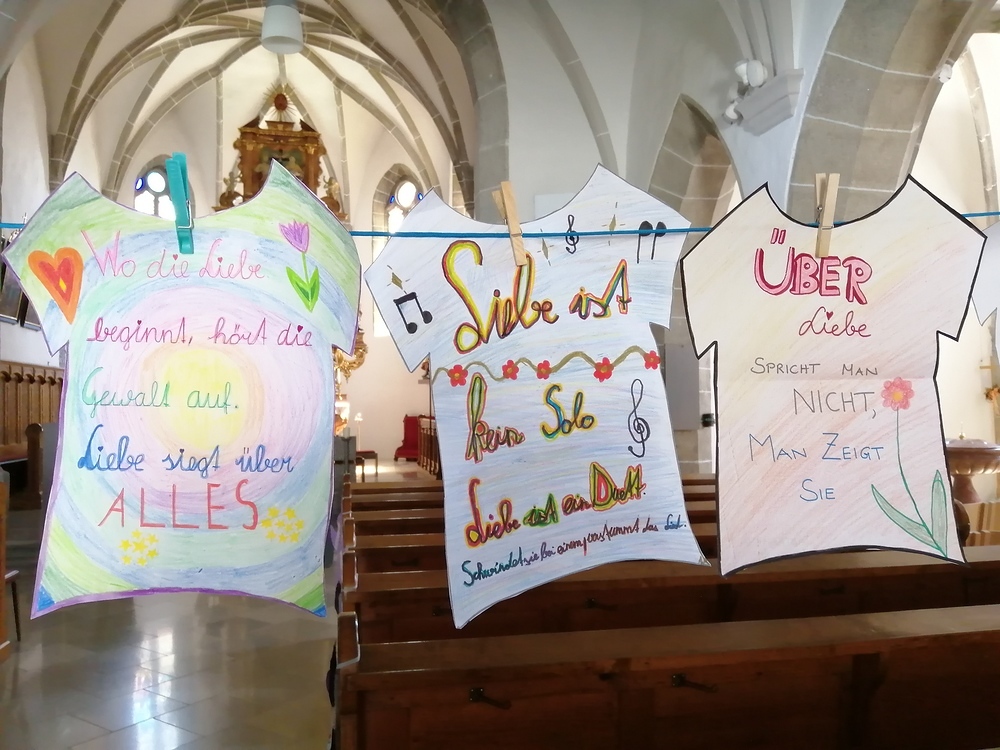 Wo die Liebe
beginnt, hört die
Gewalt auf.
Liebe siegt über
ALLES
Liebe ist
kein Solo
Liebe ist ein Duett.
Schwindet sie bei einem, verstummt das Lied.
ÜBER
Liebe
SPRICHT MAN
NICHT,
MAN ZEIGT
SIE